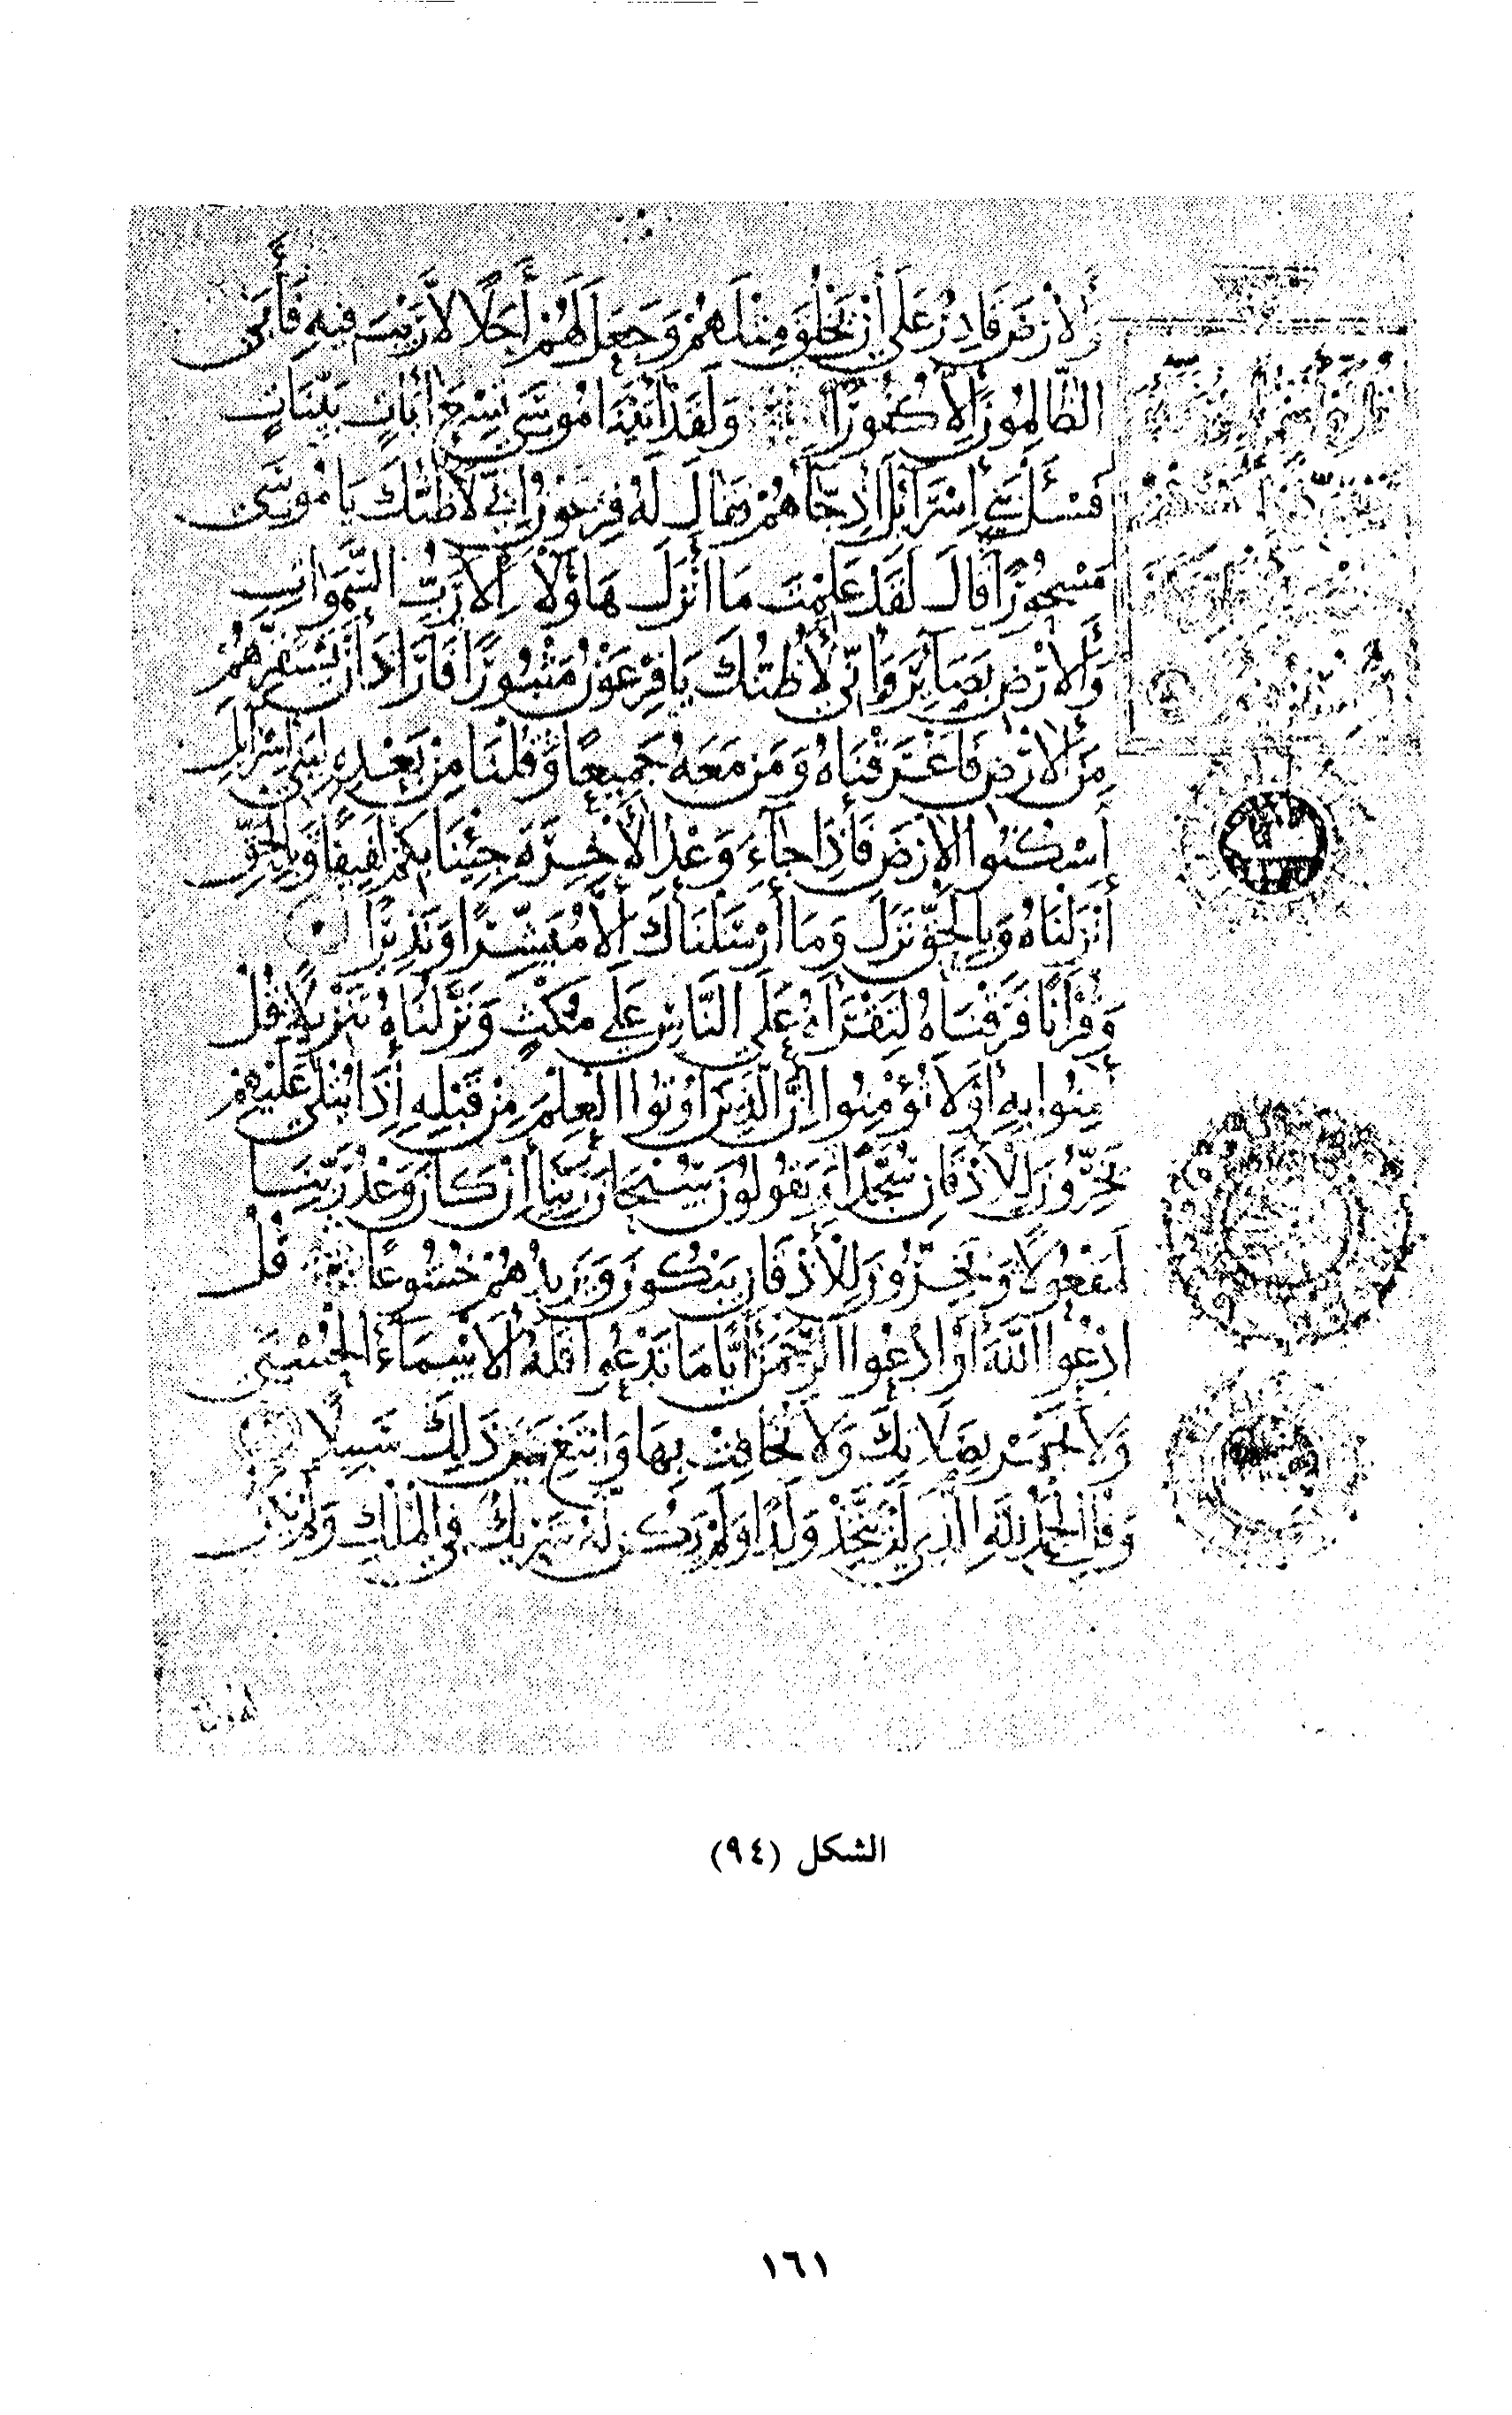 وَالْأَرْضَ قَادِرٌ عَلَى أَنْ يَخْلُقَ مِثْلَهُمْ وَجَعَلَ لَهُمْ أَجَلًا لَّا رَيْبَ فِيهِ فَأَبَى
الظَّالِمُونَ إِلَّا كُفُورًا وَلَقَدْ اٰتَيْنَا مُوسَى تِسْعَ اٰيَاتٍ بَيِّنَاتٍ
فَسْـَٔلْ بَنِي إِسْرَآئِلَ إِذْ جَآءَهُمْ فَقَالَ لَهُ فِرْعَوْنُ إِنِّي لَأَظُنُّكَ يَا مُوسَى
مَسْحُورًا قَالَ لَقَدْ عَلِمْتَ مَا أَنْزَلَ هَاؤُلَاءِ إِلَّا رَبُّ السَّمَوَاتِ
وَالْأَرْضِ بَصَآئِرَ وَإِنِّي لَأَظُنُّكَ يَا فِرْعَوْنُ مَثْبُورًا فَأَرَادَ أَنْ يَسْتَفِزَّهُمْ
مِنَ الْأَرْضِ فَأَغْرَقْنَاهُ وَمَنْ مَعَهُ جَمِيعًا وَقُلْنَا مِنْ بَعْدِهِ لِبَنِي إِسْرَآئِلَ
اسْكُنُوا الْأَرْضَ فَإِذَا جَآءَ وَعْدُ الْأَخِرَةِ جِئْنَا بِكُمْ لَفِيفًا وَبِالْحَقِّ
أَنْزَلْنَاهُ وَبِالْحَقِّ نَزَلَ وَمَا أَرْسَلْنَاكَ إِلَّا مُبَشِّرًا وَنَذِيرًا
وَقُرْاٰنًا فَرَقْنَاهُ لِتَقْرَأَهُ عَلَى النَّاسِ عَلَى مُكْثٍ وَنَزَّلْنَاهُ تَنْزِيلًا قُلْ
اٰمِنُوا بِهِ أَوْ لَا تُؤْمِنُوا إِنَّ الَّذِينَ أُوتُوا الْعِلْمَ مِنْ قَبْلِهِ إِذَا يُتْلَى عَلَيْهِمْ
يَخِرُّونَ لِلْأَذْقَانِ سُجَّدًا وَيَقُولُونَ سُبْحَانَ رَبِّنَا إِنْ كَانَ وَعْدُ رَبِّنَا
لَمَفْعُولًا وَيَخِرُّونَ لِلْأَذْقَانِ يَبْكُونَ وَيَزِيدُهُمْ خُشُوعًا قُلِ
ادْعُوا اللَّهَ أَوِ ادْعُوا الرَّحْمَنَ أَيًّا مَا تَدْعُوا فَلَهُ الْأَسْمَآءُ الْحُسْنَى
وَلَا تَجْهَرْ بِصَلَاتِكَ وَلَا تُخَافِتْ بِهَا وَابْتَغِ بَيْنَ ذَلِكَ سَبِيلًا
وَقُلِ الْحَمْدُ لِلَّهِ الَّذِي لَمْ يَتَّخِذْ وَلَدًا وَلَمْ يَكُنْ لَهُ شَرِيكٌ فِي الْمُلْكِ وَلَمْ يَكُنْ
الشكل (٩٤)
١٦١